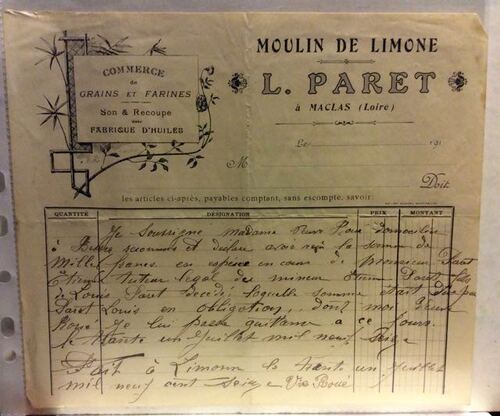 COMMERCE
de
GRAINS ET FARINES
Son & Recoupe
FABRIQUE D'HUILES
MOULIN DE LIMONE
L. PARET
à MACLAS (Loire)
Le 191
M
Doit
les articles ci-après, payables comptant, sans escompte, savoir
QUANTITÉ DÉSIGNATION PRIX MONTANT
Je soussigné madame Veuve Roue
à reconnais et declare avoir reçu la somme de
Mille francs en espèce en cours de monsieur Paret
Étienne tuteur légal des mineur Étienne Paret fils
de Louis Paret décédé laquelle somme était due par
Paret Louis en obligation, dont moi Veuve
Je lui passe quittance a ce jours
le trente un juillet mil neuf seize
Fait à Limonne le trente un juillet
mil neuf cent seize Vve